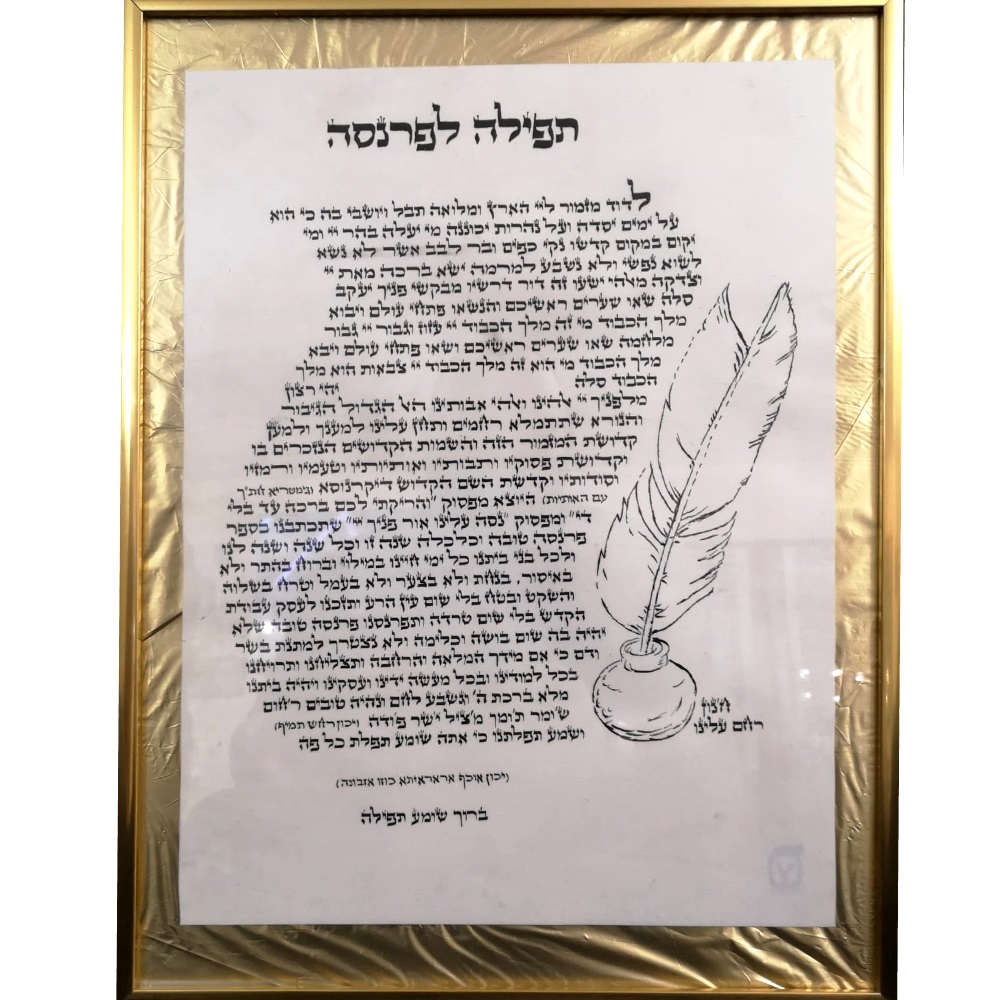 תפילה לפרנסה
לדוד מזמור ליי הארץ ומלואה תבל ויושבי בה כי הוא
על ימים יסדה ועל נהרות יכוננה מי יעלה בהר יי ומי
יקום במקום קדשו נקי כפים ובר לבב אשר לא נשא
לשוא נפשי ולא נשבע למרמה ישא ברכה מאת יי
וצדקה מאלהי ישעו זה דור דרשיו מבקשי פניך יעקב
סלה שאו שערים ראשיכם והנשאו פתחי עולם ויבוא
מלך הכבוד מי זה מלך הכבוד יי עזוז וגבור יי גבור
מלחמה שאו שערים ראשיכם ושאו פתחי עולם ויבא
מלך הכבוד מי הוא זה מלך הכבוד יי צבאות הוא מלך
הכבוד סלה יהי רצון
מלפניך יי אלהינו ואלהי אבותינו האל הגדול הגיבור
והנורא שתתמלא רחמים ותחון עלינו למענך ולמען
קדושת המזמור הזה והשמות הקדושים הנזכרים בו
וקדושת פסוקיו ותבותיו ואותיותיו וטעמיו ורמזיו
וסודותיו וקדשת השם הקדוש דיקרנוסא (גימטריא זות"ך
עם האותיות) היוצא מפסוק "והריקתי לכם ברכה עד בלי
די" ומפסוק "נסה עלינו אור פניך יי" שתכתבנו בספר
פרנסה טובה וכלכלה שנה זו וכל שנה ושנה לנו
ולכל בני ביתנו כל ימי חיינו במילוי וברוח בהתר ולא
באיסור, בנחת ולא בצער ולא בעמל וטרח בשלוה
והשקט ובטח בלי שום עין הרע ותזכנו לעסק עבודת
הקדש בלי שום טרדה ותפרנסנו פרנסה טובה שלא
יהיה בה שום בושה וכלימה ולא נצטרך למתנת בשר
ודם כי אם מידך המלאה והרחבה ותצליחנו ותרויחנו
בכל למודינו ובכל מעשה ידינו ועסקינו ויהיה ביתנו
מלא ברכת ה' ונשבע לחם ונהיה טובים ר'חום
ש'ומר ת'ומך מ'ציל י'שר פ'ודה (ויכון רחש תמיף)
ושמע תפלתנו כי אתה שומע תפלת כל פה
חנון
רחם עלינו
(יכון אוכף אראריתא כוזו אזבוגה)
ברוך שומע תפילה